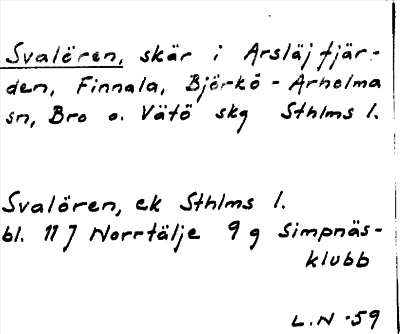 Svalören, skär i Arsläjfjär-
den, Finnala, Björkö - Arholma
sn, Bro o. Vätö skg Sthlms l.
Svalören, ek Sthlms l.
bl. 11 J Norrtälje 9 g Simpnäs-
klubb
L.N -59